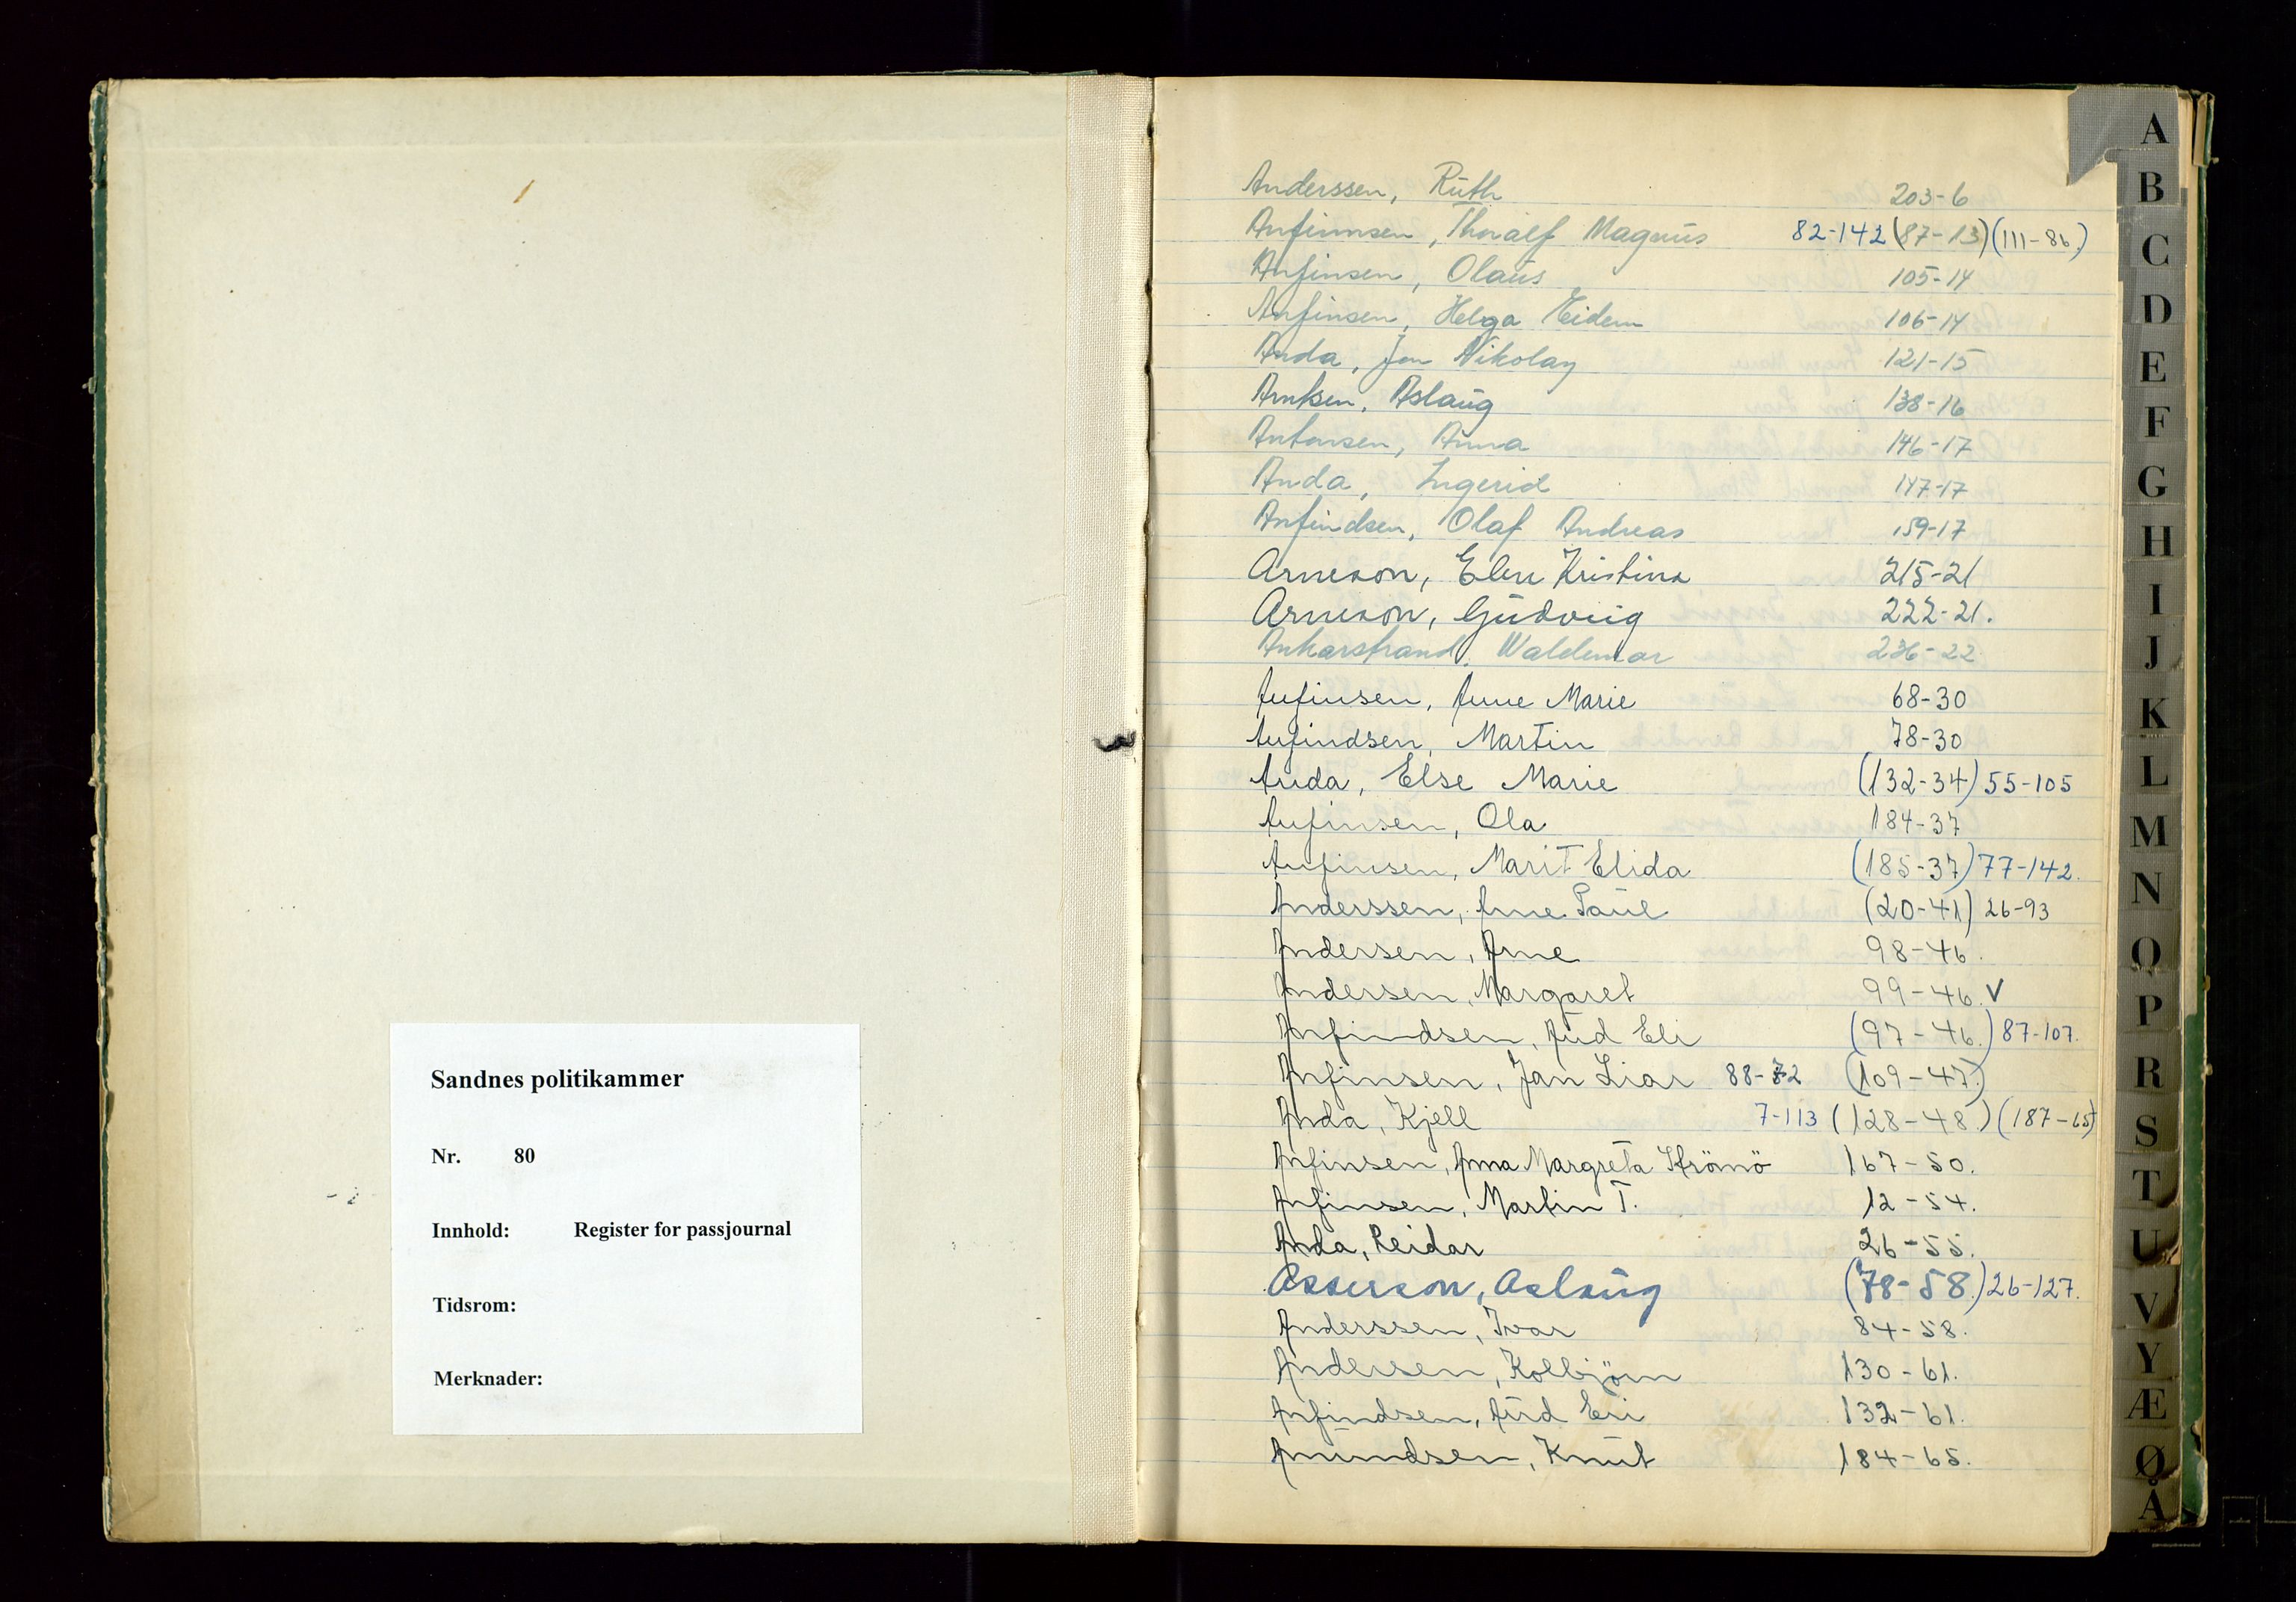 Sandnes politikammer
Nr. 80
Innhold: Register for passjournal
Tidsrom:
Merknader:
Anderssen, Ruth 203-6
Anfinnsen, Thoralf Magnus 82-142 (87-13) (111-86)
Anfinsen, Olaus 105-14
Anfinsen, Helga Eidem 106-14
Anda, Jon Nikolay 121-15
Arntsen, Aslaug 138-16
Antonsen, Anna 146-17
Anda, Ingerid 147-17
Anfindsen, Olaf Andreas 159-17
Arneson, Elen Kristina 215-21
Arneson, Gudveig 222-21.
Ankarstrand, Waldemar 236-22
Anfinsen, Anne Marie 68-30
Anfindsen, Martin 78-30
Anda, Else Marie (132-34) 55-105
Anfinsen, Ola 184-37
Anfinsen, Marit Elida (185-37) 77-142.
Anderssen, Arne Paul (20-41) 26-93
Andersen, Arne 98-46.
Andersen, Margaret 99-46. V
Anfindsen, Aud Eli (97-46.) 87-107.
Anfinsen, Jan Ivar 88-72 (109-47.)
Anda, Kjell 7-113 (128-48.) (187-65)
Anfinsen, Anna Margreta Strömö 167-50.
Anfinsen, Martin T. 12-54.
Anda, Reidar 26-55.
Asserson, Aslaug (78-58.) 26-127.
Anderssen, Ivar 84-58.
Andersen, Kolbjörn 130-61.
Anfindsen, Aud Eli 132-61.
Amundsen, Knut 184-65.
A
B
C
D
E
F
G
H
I
J
K
L
M
N
O
P
R
S
T
U
V
Y
Æ
Ø
Å